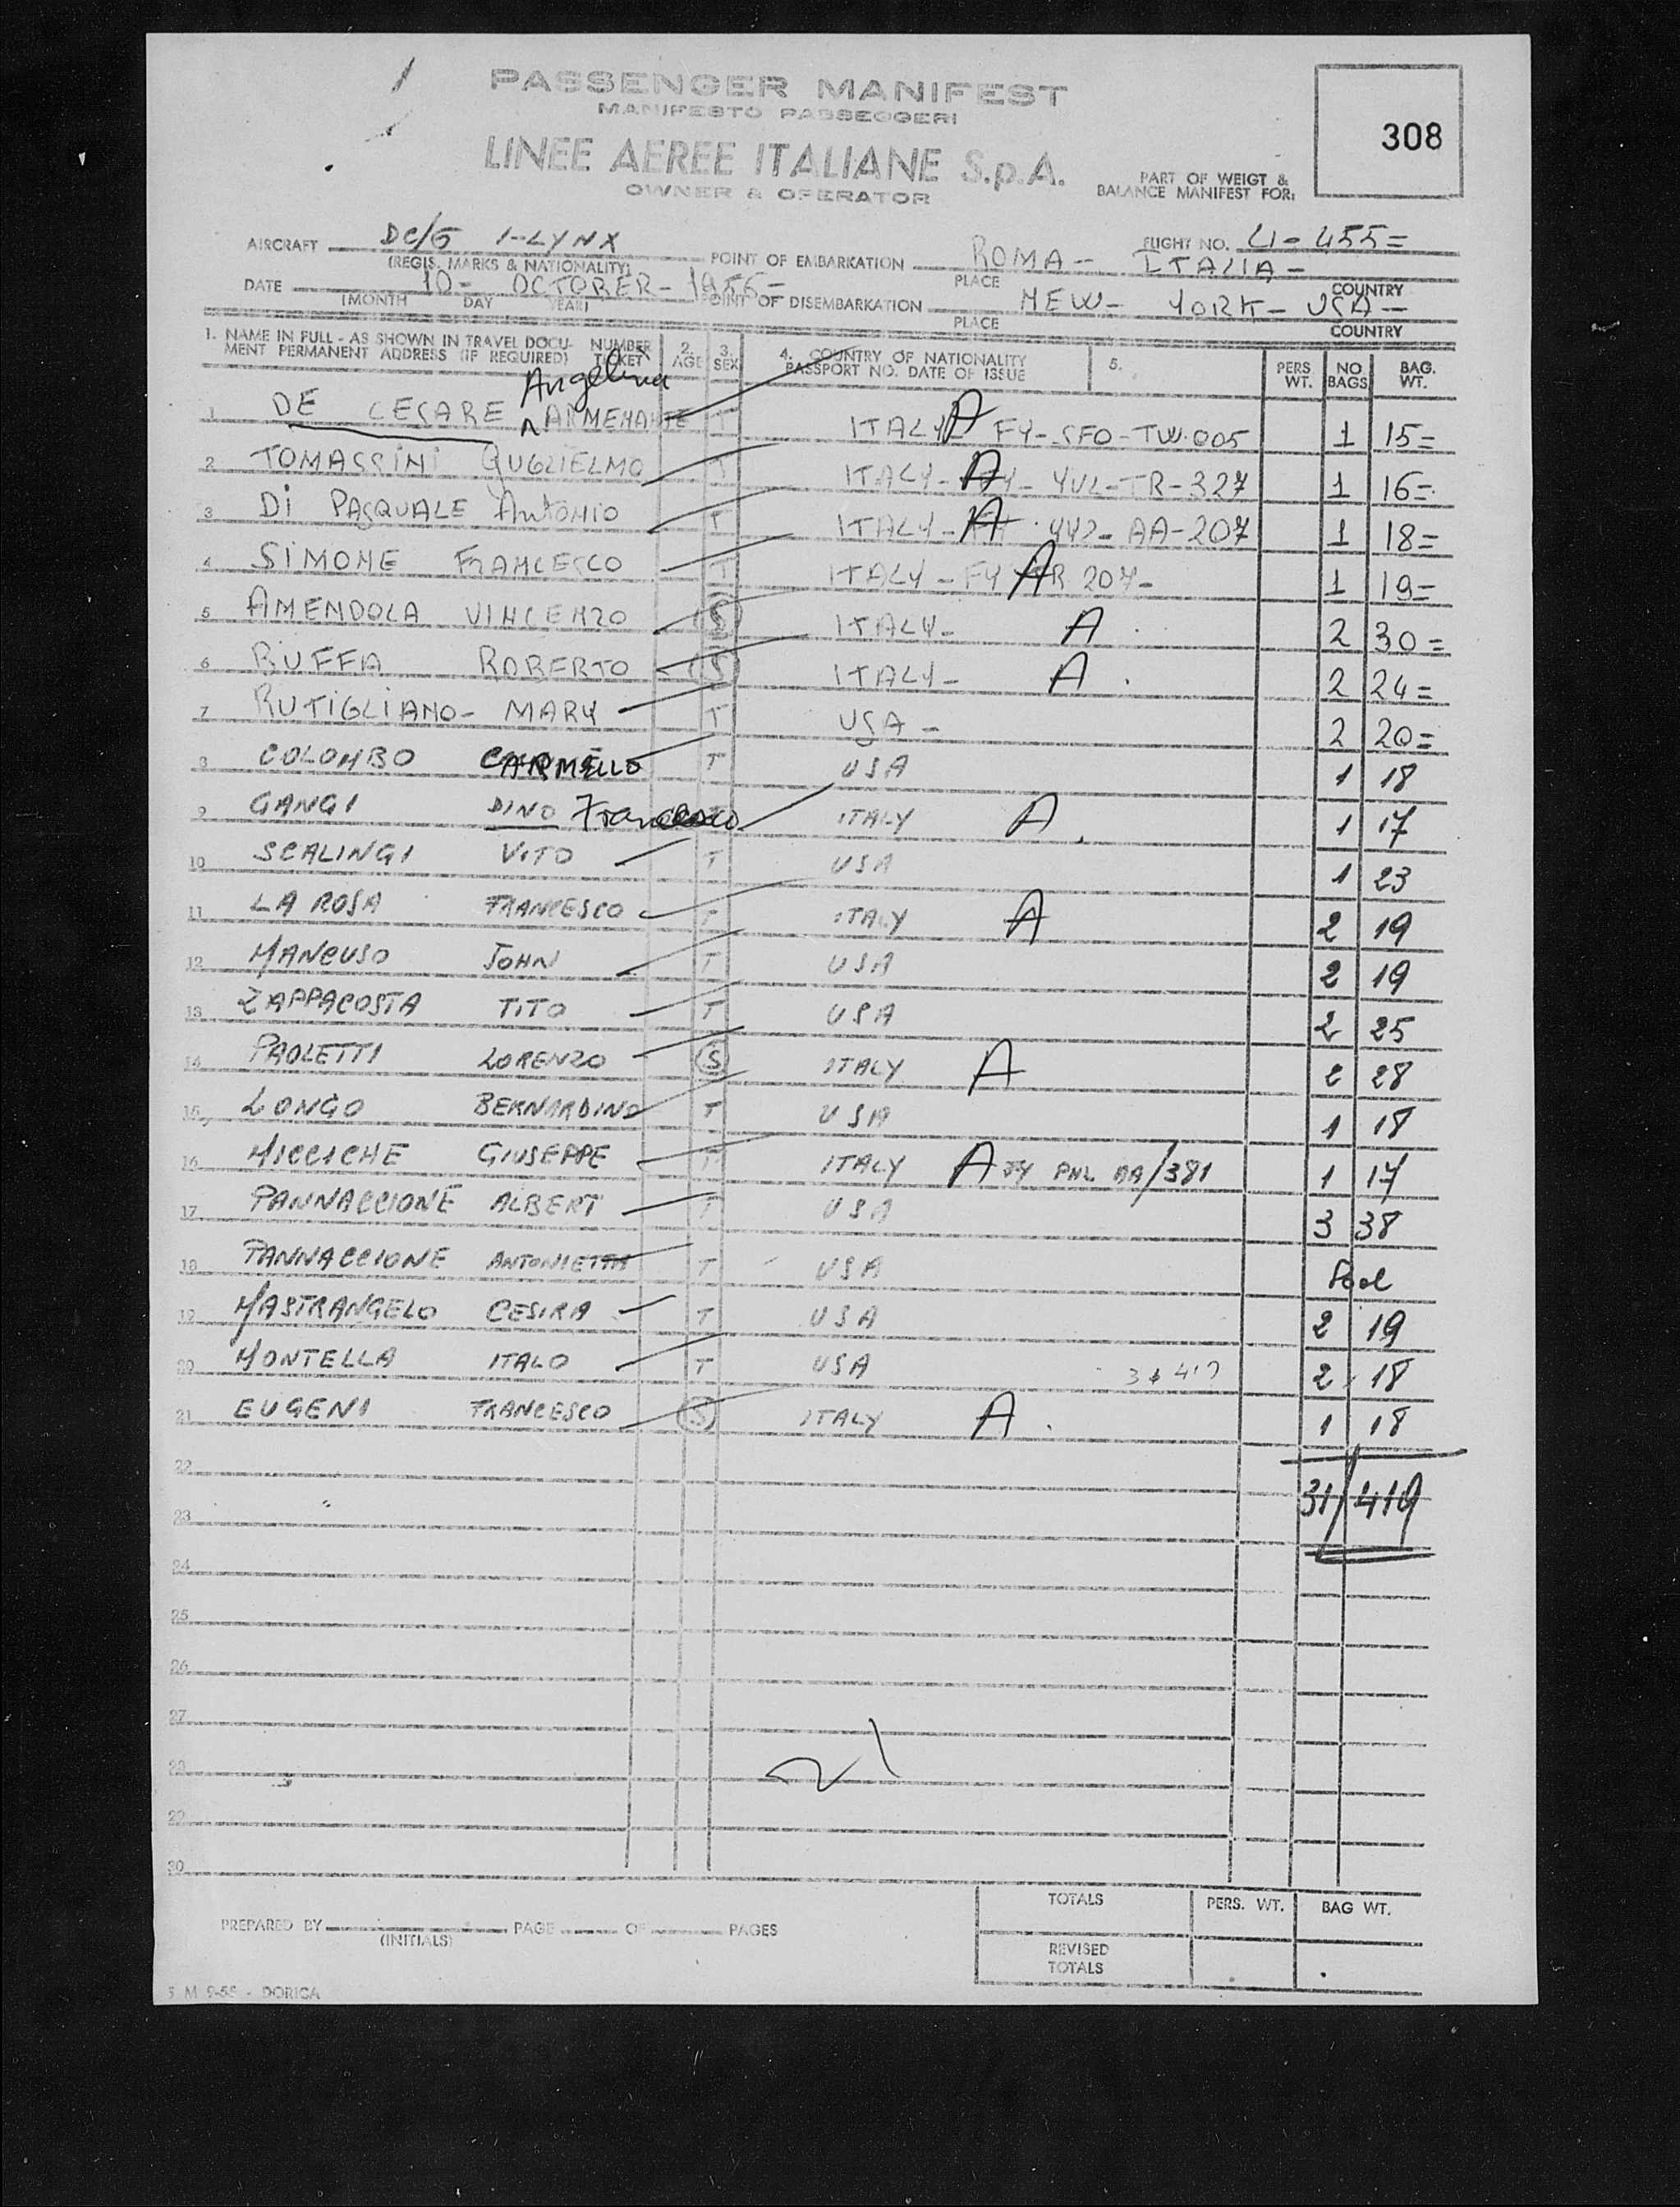 PASSENGER MANIFEST
MANIFESTO PASSEGGERI
LINEE AEREE ITALIANE S.p.A.
OWNER & OPERATOR
308
PART OF WEIGT &
BALANCE MANIFEST FOR:
AIRCRAFT DC/6 I-LYNX
(REGIS. MARKS & NATIONALITY)
FLIGHT NO. LI-455=
POINT OF EMBARKATION ROMA- ITALIA-
PLACE COUNTRY
DATE 10- OCTOBER- 1956=
(MONTH DAY YEAR)
POINT OF DISEMBARKATION NEW- YORK- USA-
PLACE COUNTRY
1. NAME IN FULL - AS SHOWN IN TRAVEL DOCU- NUMBER 2. 3. 4. COUNTRY OF NATIONALITY 5. PERS NO. BAG.
MENT PERMANENT ADDRESS (IF REQUIRED) TICKET AGE SEX PASSPORT NO. DATE OF ISSUE WT. BAGS WT.
Angelina
1 DE CESARE ARMENANTE T ITALY A FY-SFO-TW.005 1 15=
2 TOMASSINI GUGLIELMO T ITALY- A YUL-TR-327 1 16=
3 Di PASQUALE ANTONIO T ITALY- A AA-207 1 18=
4 SIMONE FRANCESCO T ITALY-FY A TR 207- 1 19=
5 AMENDOLA VINCENZO S ITALY- A 2 30=
6 BUFFA ROBERTO S ITALY- A 2 24=
7 RUTIGLIANO- MARY T USA- 2 20=
8 COLOMBO CARMELLO T USA 1 18
9 GANGI DINO Francesco ITALY A 1 17
10 SCALINGI VITO T USA 1 23
11 LA ROSA FRANCESCO T ITALY A 2 19
12 MANCUSO JOHN T USA 2 19
13 ZAPPACOSTA TITO T USA 2 25
14 PAOLETTI LORENZO S ITALY A 2 28
15 LONGO BERNARDINO T USA 1 18
16 MICCICHE GIUSEPPE T ITALY A JY PHL AA/381 1 17
17 PANNACCIONE ALBERT T USA 3 38
18 PANNACCIONE ANTONIETTA T USA Pool
19 MASTRANGELO CESIRA T USA 2 19
20 MONTELLA ITALO T USA 2 18
21 EUGENI FRANCESCO S ITALY A 1 18
22
31/419
23
24
25
26
27
21
28
29
30
TOTALS PERS. WT. BAG WT.
PREPARED BY PAGE OF PAGES
(INITIALS)
REVISED
TOTALS
M 9-55 - DORICA